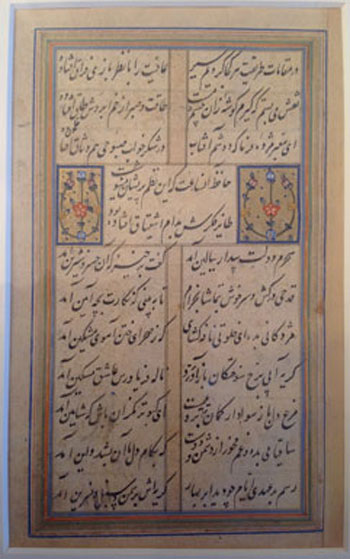 در مقامات طریقت هر کجا کردیم سیر عافیت را با نظر بازی فراق افتاده بود
نقش می بستم که گیرم گوشه زان چشم مست طاقت و صبر از خم ابروش طاق افتاده بود
ای معبر مژده فرما که دوشم آفتاب در شکر خواب صبوحی هم وثاق افتاده بود
حافظ آن ساعت که این نظم پریشان می نوشت
طایر فکرش بدام اشتیاق افتاده بود
سحرم دولت بیدار ببالین آمد گفت برخیز که آن خسرو شیرین آمد
قدحی درکش و سرخوش بتماشا بخرام تا به بینی که نگارت بچه آیین آمد
مژدگانی بده ای خلوتی نافه گشای که ز صحرای ختن آهوی مشکین آمد
گریه آبی برخ سوختگان باز آورد ناله فریادرس عاشق مسکین آمد
مرغ دل باز هوادار کمان ای کبوتر نگران باش که شاهین آمد
ساقیا می بده و غم مخور از دشمن و دوست که بکام دل ما آن بشد و این آمد
رسم بدعهدی ایام چو دید ابر بهار گریه اش بر سمن و سنبل و نسرین آمد